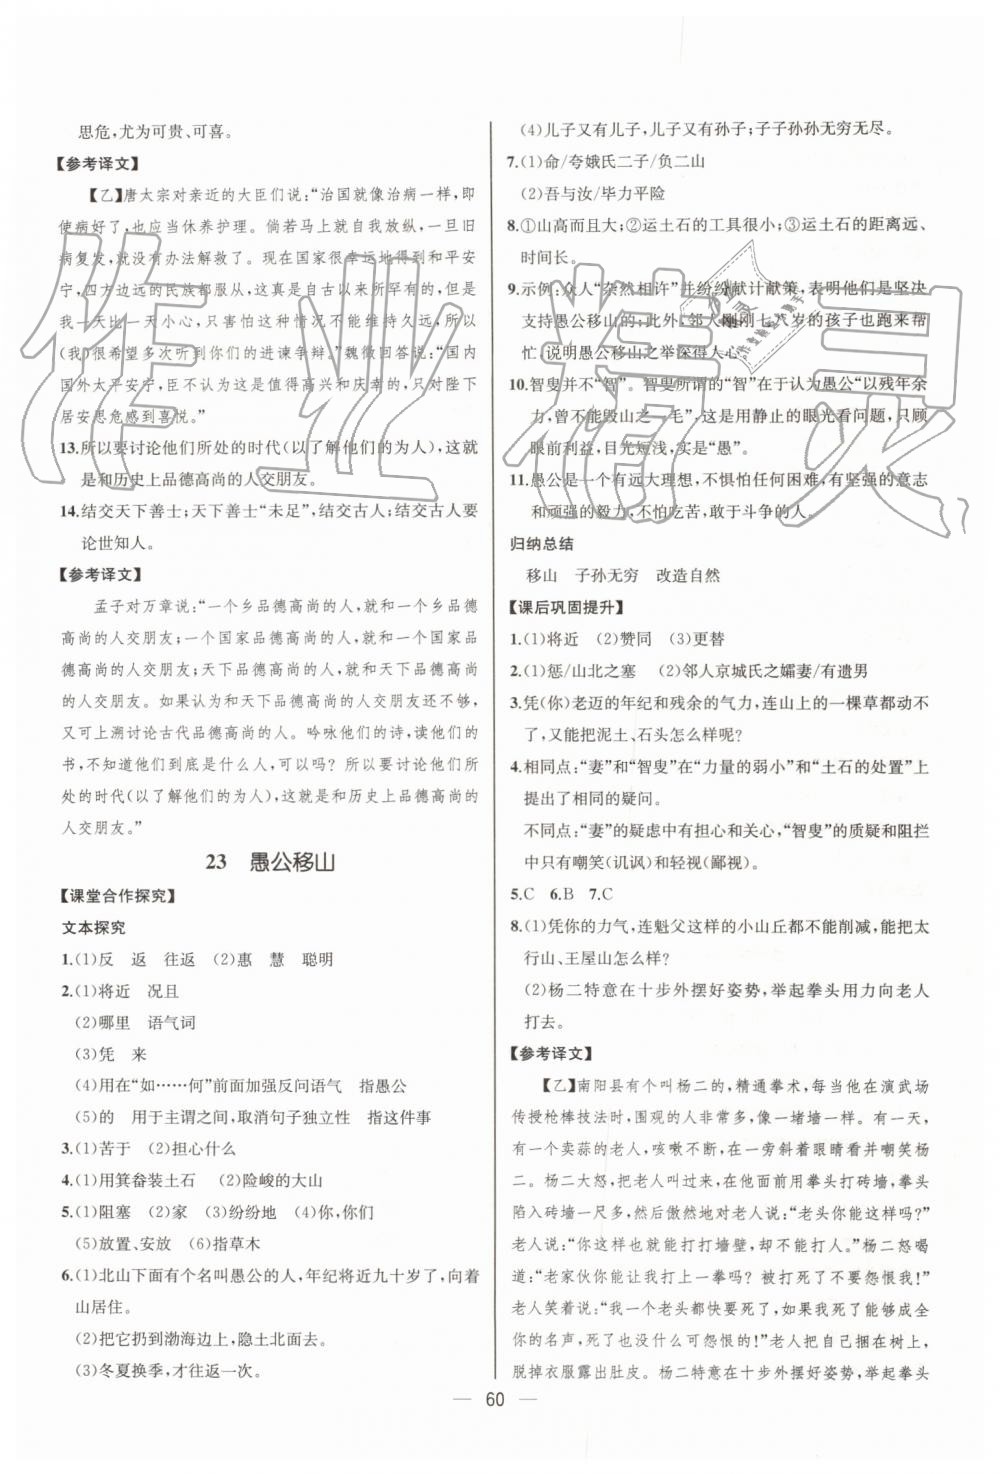 思危,尤为可贵、可喜。
【参考译文】
【乙】唐太宗对亲近的大臣们说:“治国就像治病一样,即
使病好了,也应当休养护理。倘若马上就自我放纵,一旦旧
病复发,就没有办法解救了。现在国家很幸运地得到和平安
宁,四方边远的民族都服从,这真是自古以来所罕有的,但是
我一天比一天小心,只害怕这种情况不能维持久远,所以
(我)很希望多次听到你们的进谏争辩。”魏徵回答说:“国内
国外太平安宁,臣不认为这是值得高兴和庆幸的,只对陛下
居安思危感到喜悦。”
13.所以要讨论他们所处的时代(以了解他们的为人),这就
是和历史上品德高尚的人交朋友。
14.结交天下善士;天下善士“未足”,结交古人;结交古人要
论世知人。
【参考译文】
孟子对万章说:“一个乡品德高尚的人,就和一个乡品德
高尚的人交朋友;一个国家品德高尚的人,就和一个国家品
德高尚的人交朋友;天下品德高尚的人,就和天下品德高尚
的人交朋友。如果认为和天下品德高尚的人交朋友还不够,
又可上溯讨论古代品德高尚的人。吟咏他们的诗,读他们的
书,不知道他们到底是什么人,可以吗?所以要讨论他们所
处的时代(以了解他们的为人),这就是和历史上品德高尚的
人交朋友。”
23 愚公移山
【课堂合作探究】
文本探究
1.(1)反 返 往返 (2)惠 慧 聪明
2.(1)将近 况且
(2)哪里 语气词
(3)凭 来
(4)用在“如……何”前面加强反问语气 指愚公
(5)的 用于主谓之间,取消句子独立性 指这件事
3.(1)苦于 (2)担心什么
4.(1)用箕畚装土石 (2)险峻的大山
5.(1)阻塞 (2)家 (3)纷纷地 (4)你,你们
(5)放置、安放 (6)指草木
6.(1)北山下面有个名叫愚公的人,年纪将近九十岁了,向着
山居住。
(2)把它扔到渤海边上,隐土北面去。
(3)冬夏换季,才往返一次。
(4)儿子又有儿子,儿子又有孙子;子子孙孙无穷无尽。
7.(1)命/夸娥氏二子/负二山
(2)吾与汝/毕力平险
8.①山高而且大;②运土石的工具很小;③运土石的距离远、
时间长。
9.示例:众人“杂然相许”并纷纷献计献策,表明他们是坚决
支持愚公移山的;此外,邻人刚刚七八岁的孩子也跑来帮
忙,说明愚公移山之举深得人心。
10.智叟并不“智”。智叟所谓的“智”在于认为愚公“以残年余
力,曾不能毁山之一毛”,这是用静止的眼光看问题,只顾
眼前利益,目光短浅,实是“愚”。
11.愚公是一个有远大理想,不惧怕任何困难,有坚强的意志
和顽强的毅力,不怕吃苦、敢于斗争的人。
归纳总结
移山 子孙无穷 改造自然
【课后巩固提升】
1.(1)将近 (2)赞同 (3)更替
2.(1)惩/山北之塞 (2)邻人京城氏之孀妻/有遗男
3.凭(你)老迈的年纪和残余的气力,连山上的一棵草都动不
了,又能把泥土、石头怎么样呢?
4.相同点:“妻”和“智叟”在“力量的弱小”和“土石的处置”上
提出了相同的疑问。
不同点:“妻”的疑虑中有担心和关心,“智叟”的质疑和阻拦
中只有嘲笑(讥讽)和轻视(鄙视)。
5.C 6.B 7.C
8.(1)凭你的力气,连魁父这样的小山丘都不能削减,能把太
行山、王屋山怎么样?
(2)杨二特意在十步外摆好姿势,举起拳头用力向老人
打去。
【参考译文】
【乙】南阳县有个叫杨二的,精通拳术,每当他在演武场
传授枪棒技法时,围观的人非常多,像一堵墙一样。有一天,
有一个卖蒜的老人,咳嗽不断,在一旁斜着眼睛看并嘲笑杨
二。杨二大怒,把老人叫过来,在他面前用拳头打砖墙,拳头
陷入砖墙一尺多,然后傲然地对老人说:“老头你能这样吗?”
老人说:“你这样也就能打打墙壁,却不能打人。”杨二怒喝
道:“老家伙你能让我打上一拳吗?被打死了不要怨恨我!”
老人笑着说:“我一个老头都快要死了,如果我死了能够成全
你的名声,死了也没什么可怨恨的!”老人把自己捆在树上,
脱掉衣服露出肚皮。杨二特意在十步外摆好姿势,举起拳头
60
作业精灵